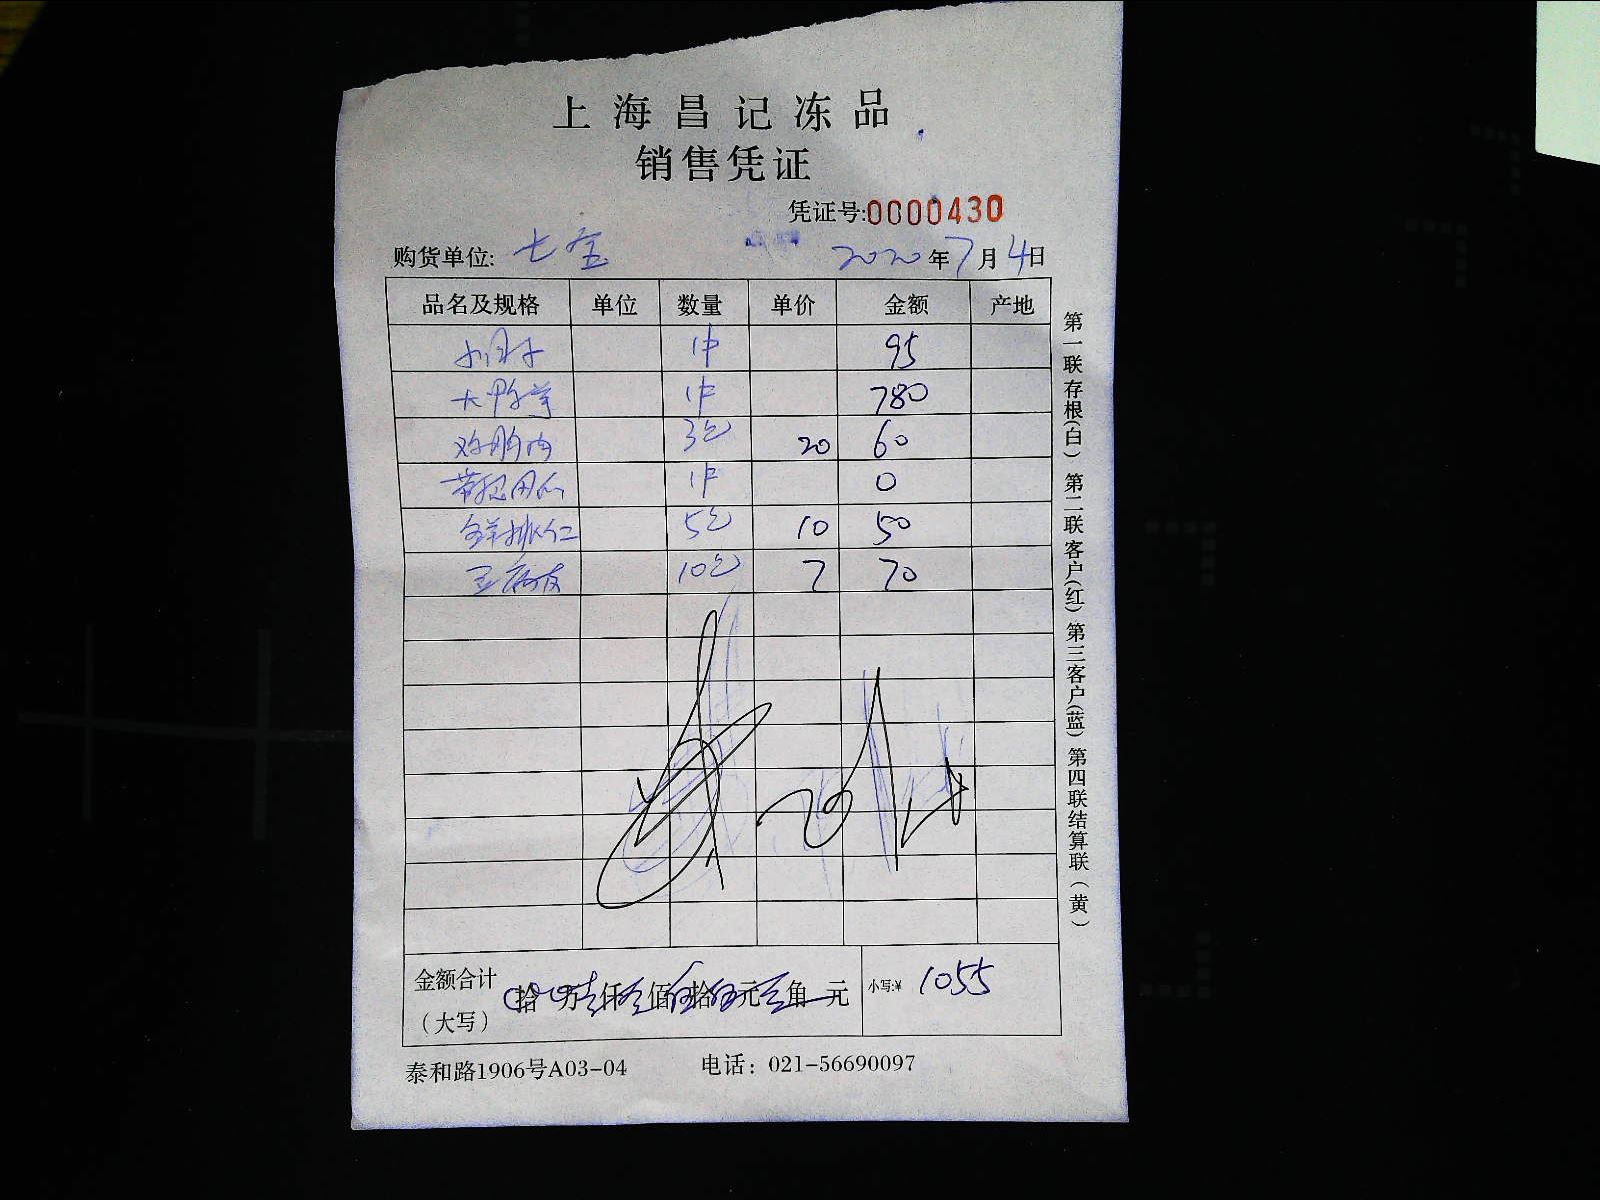 上海昌记冻品
销售凭证
凭证号:0000430
购货单位: 七宝 2020年7月4日
品名及规格 单位 数量 单价 金额 产地
1件 95
大鸭掌 1件 780
鸡胸肉 3包 20 60
1件 0
5包 10 50
10包 7 70
金额合计（大写） 拾 万壹仟 佰伍拾伍元 角 元 小写:¥ 1055
泰和路1906号A03-04 电话：021-56690097
第一联存根(白) 第二联客户(红) 第三客户(蓝) 第四联结算联(黄)